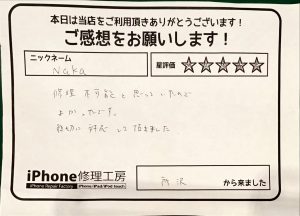 本日は当店をご利用頂きありがとうございます!
ご感想をお願いします!
ニックネーム
Naka
星評価 ★★★★★
修理 不可能と思っていたので
よかったです。
親切に対応して頂きました
iPhone修理工房
iPhone Repair Factory iPhone/iPad/iPod touch
所沢 から来ました